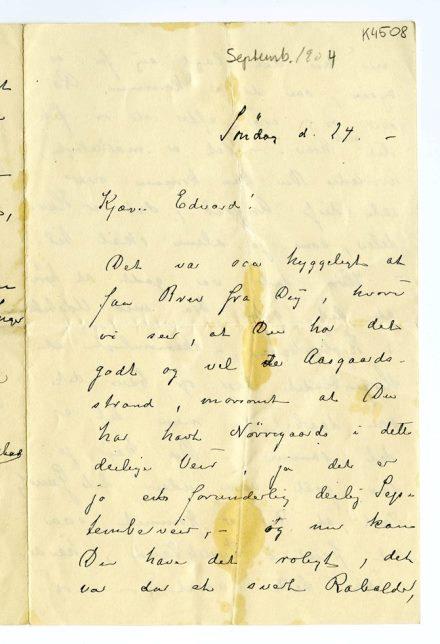 K4508
Septemb. 1904
Søndag d. 24. –
Kjære Edvard!
Det var saa hyggeligt at
faa Brev fra Dig, hvori
vi ser, at Du har det
godt og vel te Aasgaards-
strand, morsomt at Du
har havt Nørregaards i dette
deilige Veir, ja det er
jo en forunderlig deilig Sep-
temberveir, – og nu kan
Du have det roligt, det
var da et svært Rabalder,